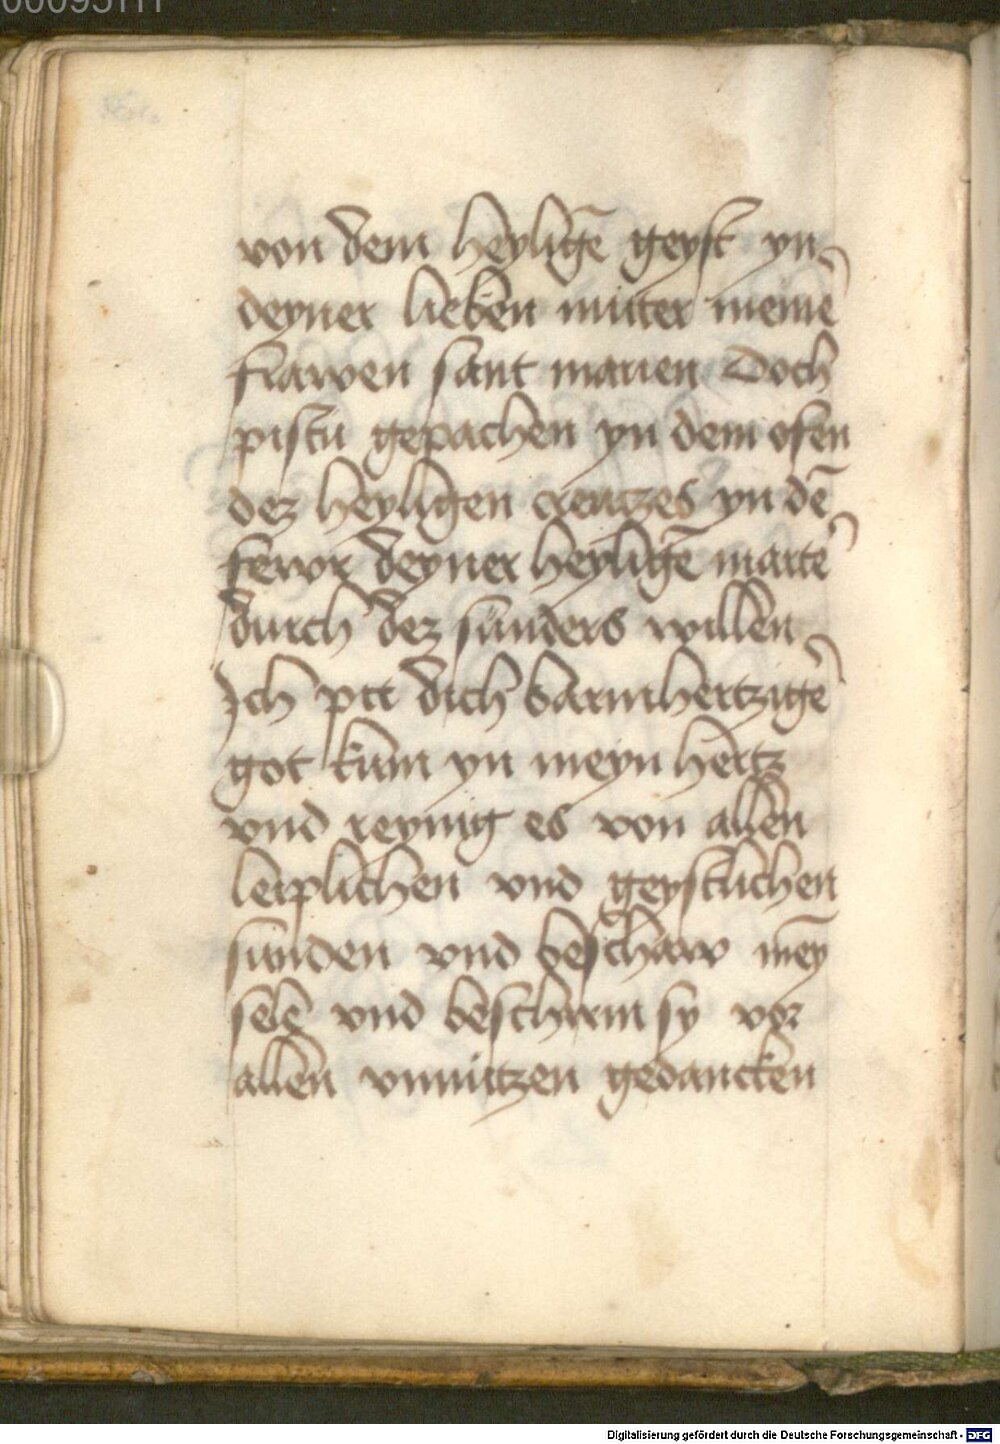 von dem heyligē geyst yn
deyner lieben muter meinē
frawen sant marien Doch
pistu gepachen yn dem ofen
dez heyligen creutzes yn dē
fewr deyner heyligē marter
durch dez sünders willen
Ich pit dich barmhertziger
got kum yn meyn hertz
vnd reynig es von allen
leiplichen vnd geystlichen
sünden vnd beschaw mey̅
sele vnd beschirm sy vor
allen vnnützen gedancken
Digitalisierung gefördert durch die Deutsche Forschungsgemeinschaft - DFG